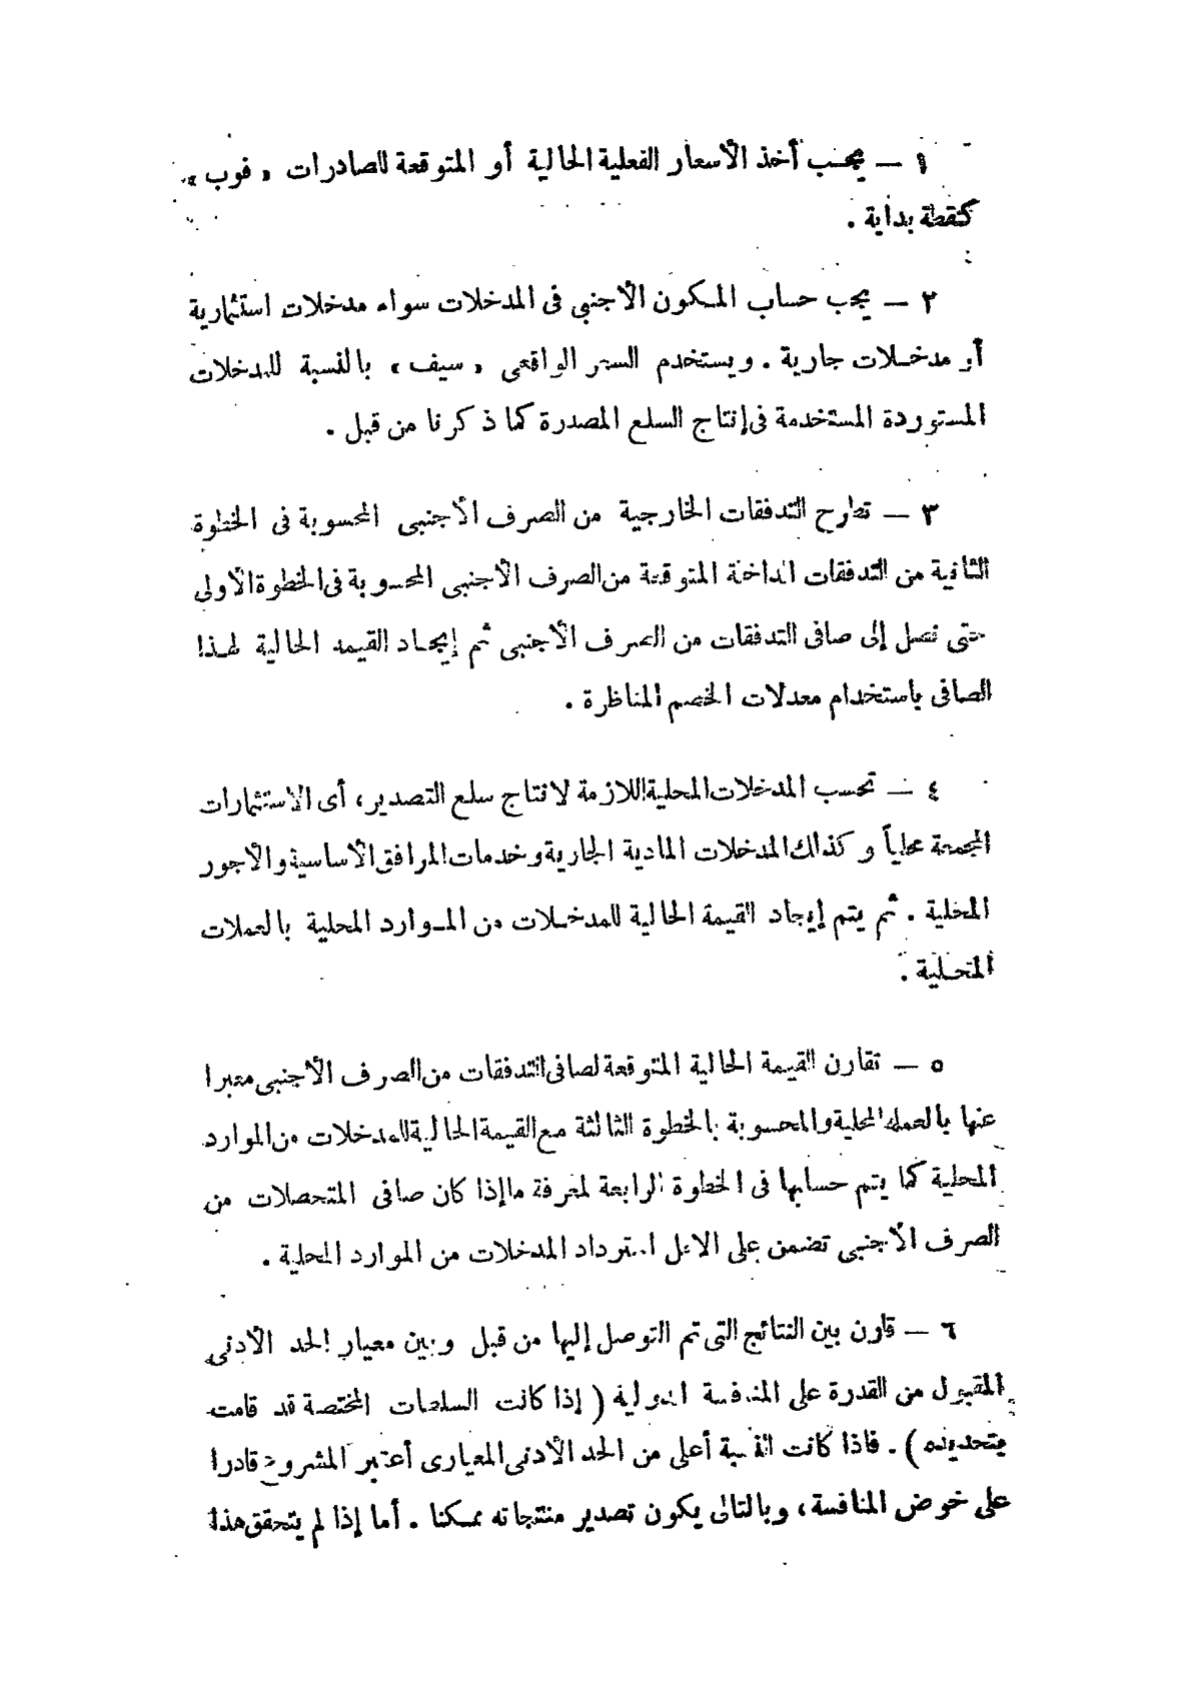 ١ — يجب أخذ الأسعار الفعلية الحالية أو المتوقعة للصادرات « فوب »
كنقطة بداية .
٢ — يجب حساب المكون الأجنبي فى المدخلات سواء مدخلات استثمارية
أو مدخلات جارية . ويستخدم السعر الواقعى « سيف » بالنسبة للمدخلات
المستوردة المستخدمة فى إنتاج السلع المصدرة كما ذكرنا من قبل .
٣ — تطرح التدفقات الخارجية من الصرف الأجنبى المحسوبة فى الخطوة
الثانية من التدفقات الداخلة المتوقعة من الصرف الأجنبى المحسوبة فى الخطوة الأولى
حتى نصل إلى صافى التدفقات من الصرف الأجنبى ثم إيجاد القيمه الحالية لهذا
الصافى باستخدام معدلات الخصم المناظرة .
٤ — تحسب المدخلات المحلية اللازمة لانتاج سلع التصدير ، أى الاستثمارات
المجمعة محلياً وكذلك المدخلات المادية الجارية وخدمات المرافق الأساسية والأجور
المحلية . ثم يتم إيجاد القيمة الحالية للمدخلات من الموارد المحلية بالعملات
المحلية .
٥ — تقارن القيمة الحالية المتوقعة لصافى التدفقات من الصرف الأجنبى معبرا
عنها بالعملة المحلية والمحسوبة بالخطوة الثالثة مع القيمة الحالية للمدخلات من الموارد
المحلية كما يتم حسابها فى الخطوة الرابعة لمعرفة ما إذا كان صافى المتحصلات من
الصرف الأجنبى تضمن على الاقل استرداد المدخلات من الموارد المحلية .
٦ — قارن بين النتائج التى تم التوصل إليها من قبل وبين معيار الحد الأدنى
المقبول من القدرة على المنافسة الدولية ( إذا كانت السلطات المختصة قد قامت
بتحديده ) . فاذا كانت النسبة أعلى من الحد الأدنى المعيارى أعتبر المشروع قادرا
على خوض المنافسة ، وبالتالى يكون تصدير منتجاته ممكنا . أما إذا لم يتحقق هذا